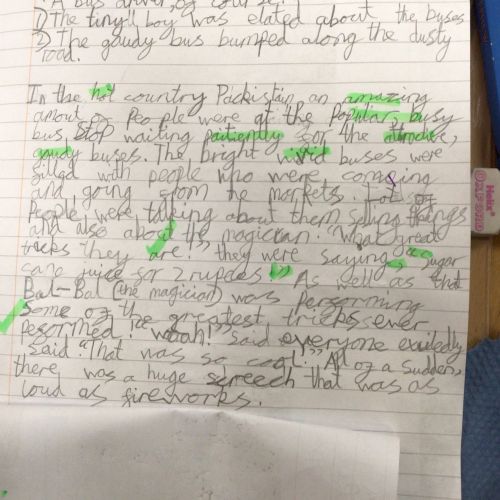 A bus driver, of course!
1) The tiny boy was elated about the buses
2) The gaudy bus bumped along the dusty
road.
In the hot country Packistan an amazing
amount of People were at the Popular, busy
bus stop waiting patiently for the
gaudy buses. The bright vivid buses were
filled with people who were comeing
and going from he markets. Lots of
People were talking about them selling things
and also about the magician. "What great
tricks they are!" they were saying, sugar
cane juice for 2 rupees!" As well as that
Bal-Bal (the magician) was Performing
some of the greatest tricks ever
Performed! "woah!" Said everyone exiledly
Said. "That was so cool!" All of a sudden,
there was a huge screech that was as
loud as fireworks.
Helix